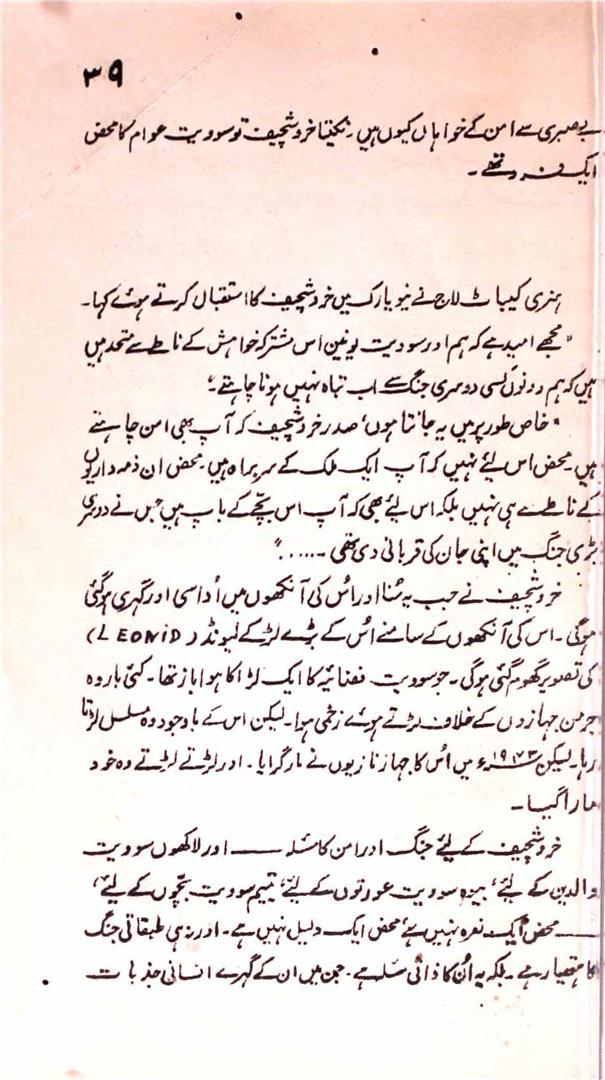 ۳۹
بے صبری سے امن کے خواہاں کیوں ہیں۔ نکیتا خروشچیف تو سوویت عوام کا محض
ایک فرد تھے۔
ہنری کیباٹ لاج نے نیویارک میں خروشچیف کا استقبال کرتے ہوئے کہا۔
"مجھے امید ہے کہ ہم اور سوویت یونین اس مشترکہ خواہش کے ناطے سے متحد ہیں
ہیں کہ ہم دونوں کسی دوسری جنگ سے اب تباہ نہیں ہونا چاہتے۔"
"خاص طور پر میں یہ جانتا ہوں، صدر خروشچیف کہ آپ بھی امن چاہتے
ہیں۔ محض اس لئے نہیں کہ آپ ایک ملک کے سربراہ ہیں۔ محض ان ذمہ داریوں
کے ناطے سے ہی نہیں بلکہ اس لئے بھی کہ آپ اس بچے کے باپ ہیں جس نے دوسری
بڑی جنگ میں اپنی جان کی قربانی دی تھی۔....."
خروشچیف نے جب یہ سُنا اور اُس کی آنکھوں میں اُداسی اور گہری ہوگئی
ہوگی۔ اس کی آنکھوں کے سامنے اُس کے بڑے لڑکے لیونڈ (LEONID)
کی تصویر گھوم گئی ہوگی۔ جو سوویت فضائیہ کا ایک لڑاکا ہوا باز تھا۔ کئی بار وہ
جرمن جہازوں کے خلاف لڑتے ہوئے زخمی ہوا۔ لیکن اس کے باوجود وہ مسلسل لڑتا
رہا۔ لیکن ۱۹۷۳ء میں اُس کا جہاز نازیوں نے مار گرایا۔ اور لڑتے لڑتے وہ خود
مارا گیا۔
خروشچیف کے لئے جنگ اور امن کا مسئلہ —— اور لاکھوں سوویت
والدین کے لئے، بیوہ سوویت عورتوں کے لئے، یتیم سوویت بچوں کے لئے،
—— محض ایک نعرہ نہیں ہے، محض ایک دلیل نہیں ہے۔ اور نہ ہی طبقاتی جنگ
کا ہتھیار ہے۔ بلکہ یہ اُن کا ذاتی مسئلہ ہے۔ جن میں ان کے گہرے انسانی جذبات